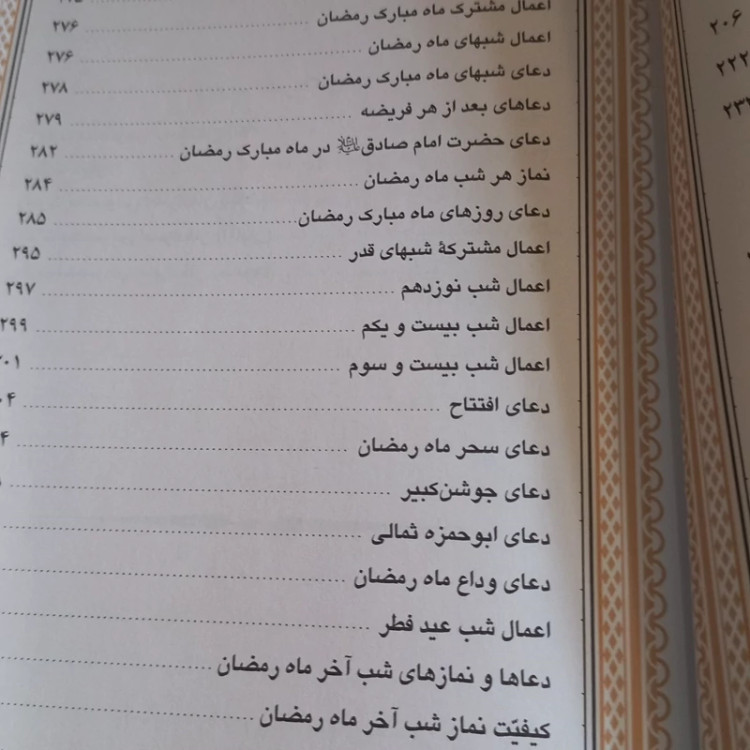 اعمال مشترک ماه مبارک رمضان ........ ۲۷۶
اعمال شبهای ماه رمضان ........ ۲۷۶
دعای شبهای ماه مبارک رمضان ........ ۲۷۸
دعاهای بعد از هر فریضه ........ ۲۷۹
دعای حضرت امام صادق در ماه مبارک رمضان ........ ۲۸۲
نماز هر شب ماه رمضان ........ ۲۸۴
دعای روزهای ماه مبارک رمضان ........ ۲۸۵
اعمال مشترکهٔ شبهای قدر ........ ۲۹۵
اعمال شب نوزدهم ........ ۲۹۷
اعمال شب بیست و یکم ........ ۲۹۹
اعمال شب بیست و سوم ........ ۰۱
دعای افتتاح ........ ۰۴
دعای سحر ماه رمضان ........ ۴
دعای جوشن‌کبیر ........
دعای ابوحمزه ثمالی ........
دعای وداع ماه رمضان ........
اعمال شب عید فطر ........
دعاها و نمازهای شب آخر ماه رمضان ........
کیفیّت نماز شب آخر ماه رمضان ........
۲۰۶
۲۲۲